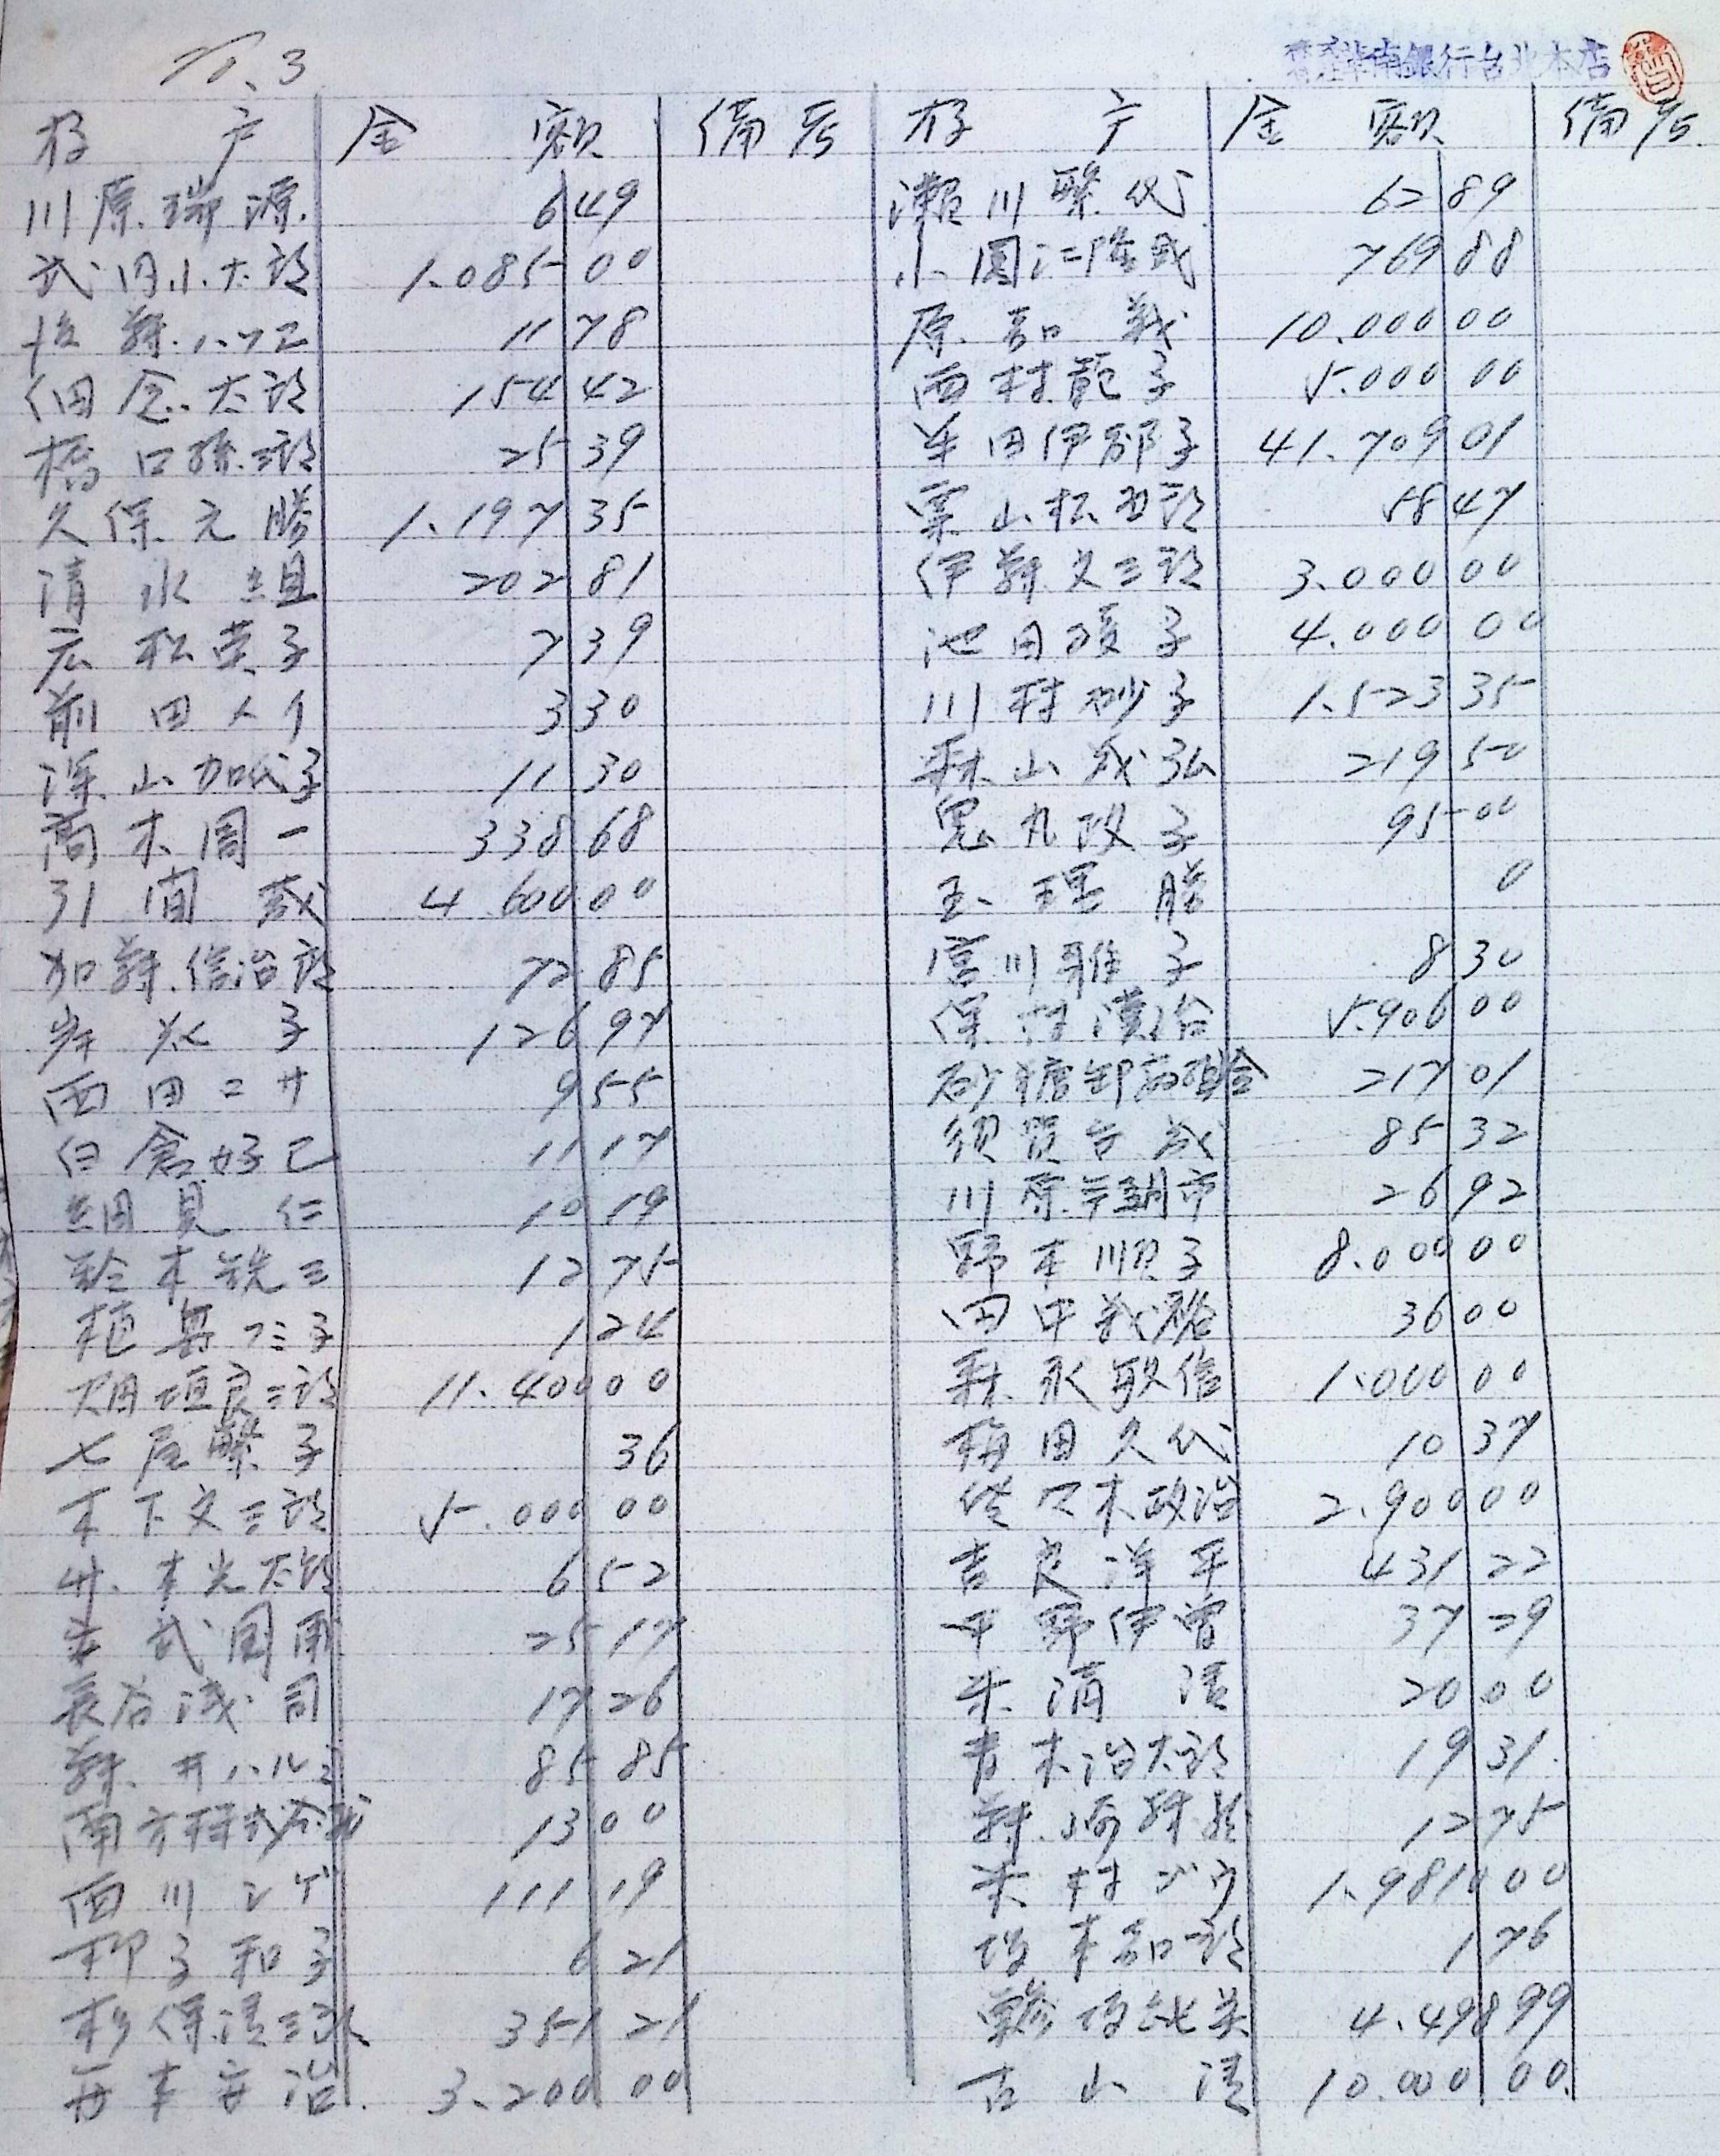 No. 3
華南銀行台北本店
存 户 金 額 備考
川原瑞源 6 49
武内小太郎 1.085 00
後藤ハマ乙 11 78
佃 念太郎 154 42
橋口孫三郎 25 39
久保元勝 1.197 35
清水組 202 81
広松英子 7 39
前田 3 30
深山加代子 11 30
高木周一 338 68
引間 4 600 00
加藤信治郎 72 85
子 126 97
西田ニサ 9 55
白倉好己 11 17
細見仁 10 19
鈴木銑三 12 75
植奥フミ子 1 24
畑垣良三郎 11.400 00
七尾繁子 36
木下文三郎 5.000 00
本光太郎 6 52
武国雨 25 17
長谷浅司 17 26
藤井ハルミ 85 85
南方株式会社 13 00
西川シゲ 111 19
柳子和子 6 21
杉保清三 351 21
安治 3.200 00
存 户 金 額 備考
瀬川繁代 62 89
小園江隆哉 769 88
原 和義 10.000 00
西村龍子 5.000 00
半田伊都子 41.709 01
栗山松五郎 58 47
伊藤又三郎 3.000 00
池田 子 4.000 00
川村砂子 1.523 35
森山茂弘 219 50
鬼丸政子 95 00
玉理勝 0
宮川雅子 8 30
保村漢治 5.906 00
砂糖卸商組合 217 01
須賀吉成 85 32
川原 市 26 92
野本順子 8.000 00
田中義裕 36 00
森永敏信 1.000 00
梅田久代 10 37
佐々木政治 2.900 00
吉良洋平 431 22
平野伊曽 37 29
米満清 20 00
青木治太郎 19 31
藤 12 75
米村 1.981 00
坂本和一郎 1 76
4.498 99
古山清 10.000 00